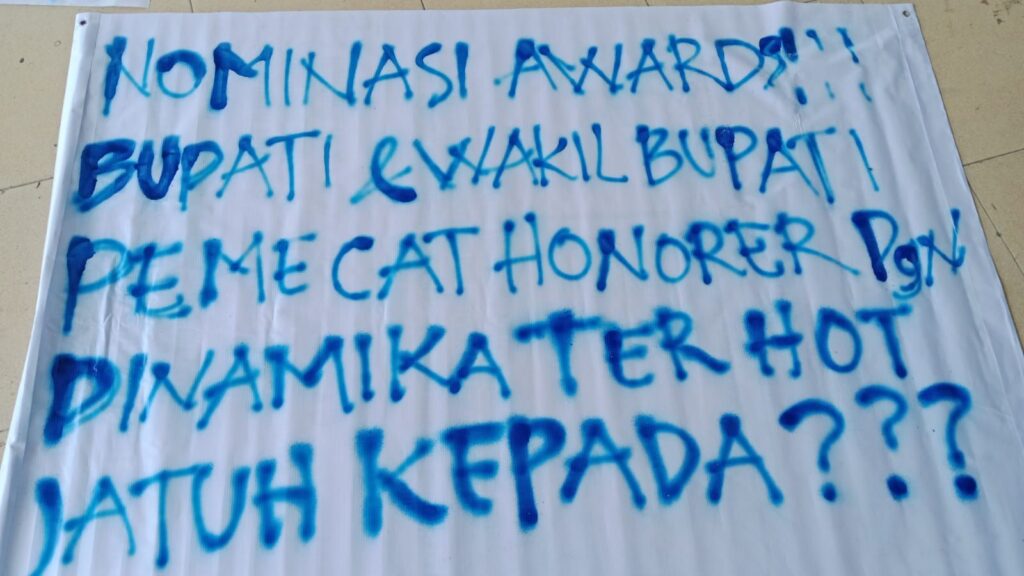 NOMINASI AWARDS!!!
BUPATI & WAKIL BUPATI
PEMECAT HONORER DgN
DINAMIKA TER HOT
JATUH KEPADA???